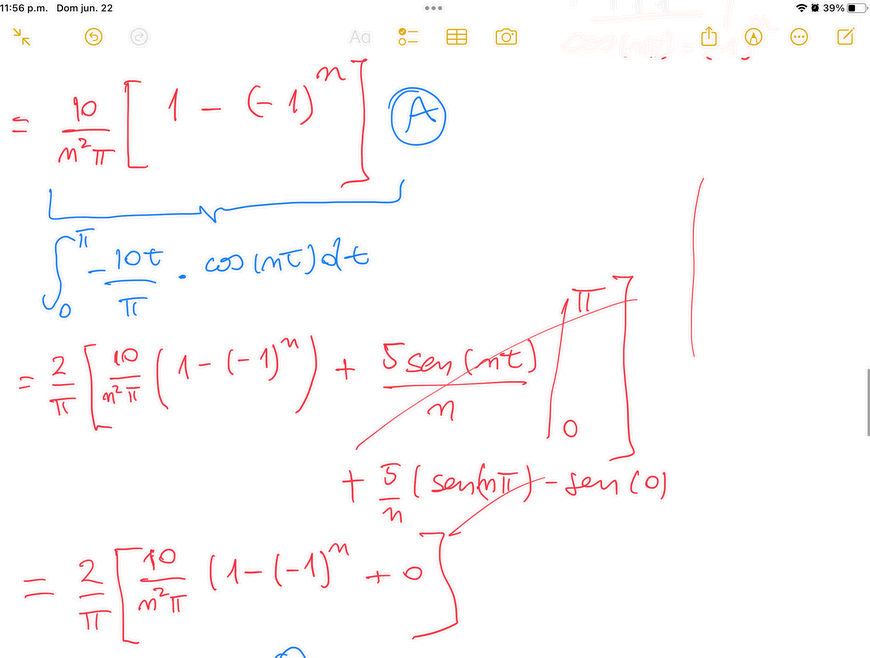 11:56 p.m. Dom jun. 22
39%
Aa
= 10/n²π [ 1 - (-1)ⁿ ] A
∫₀^π -10t/π · cos(nt)dt
= 2/π [ 10/n²π (1-(-1)ⁿ) + 5 sen(nt)/n |₀^π ]
+ 5/n (sen(nπ) - sen(0)
= 2/π [ 10/n²π (1-(-1)ⁿ + 0 ]